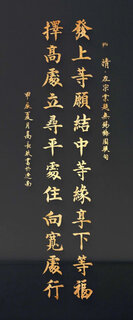 清·左宗棠題無錫梅園
發上等願結中等緣享下等福
擇高處立尋平處住向寬處行
甲辰夏月高